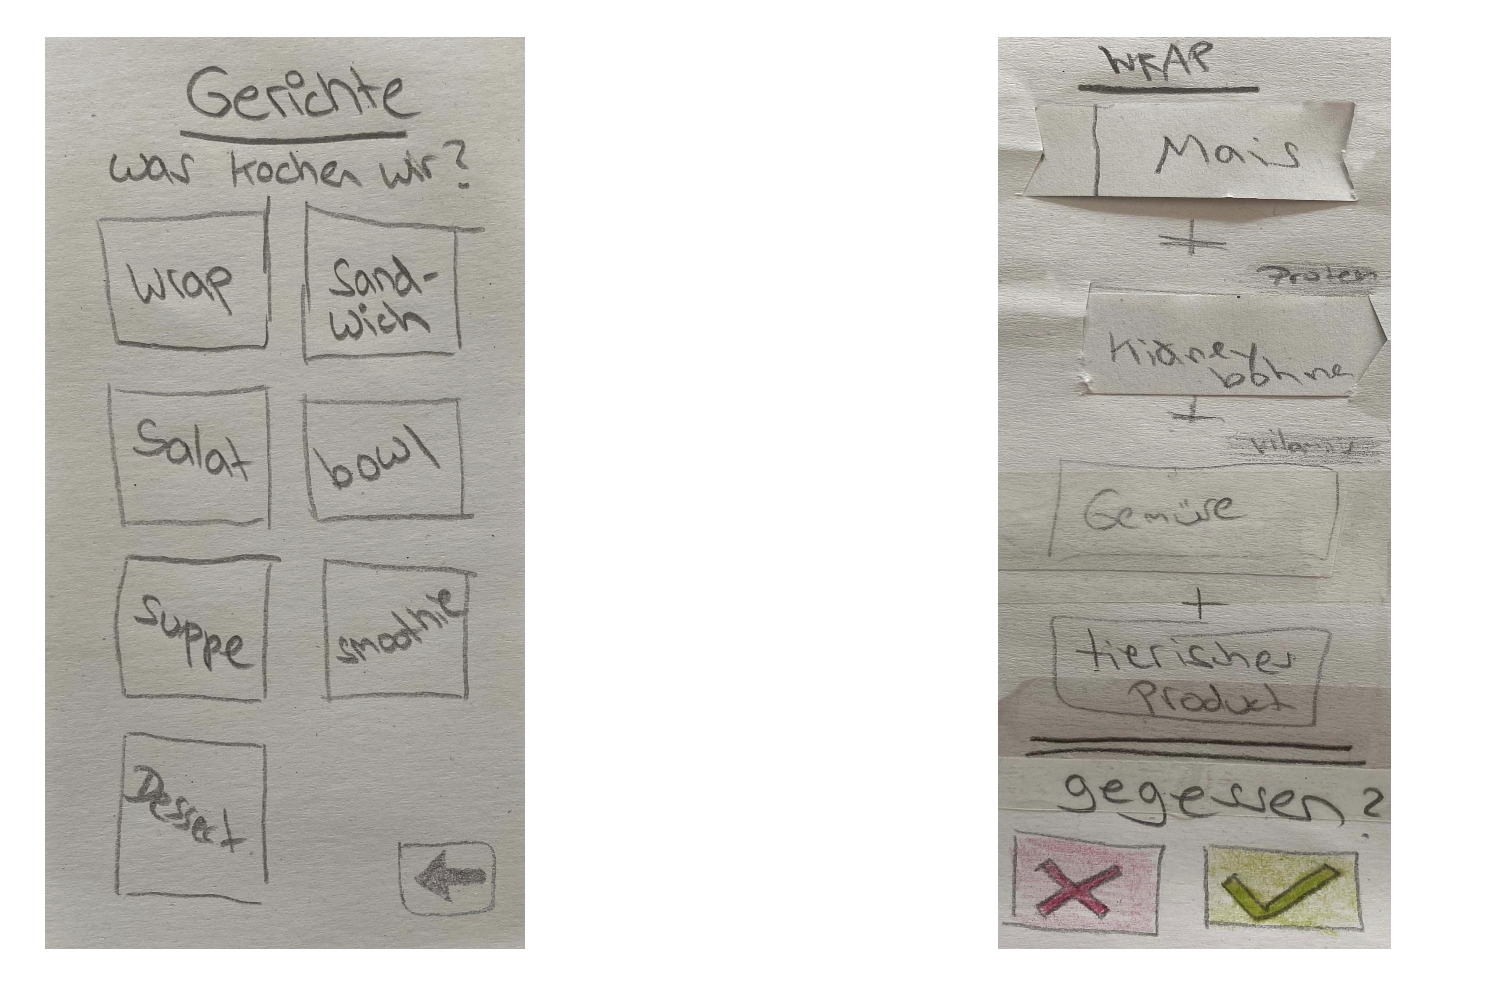 Gerichte
was kochen wir?
Wrap
Sand-
wich
Salat
bowl
Suppe
smoothie
Dessert
WRAP
Mais
+
Protein
Kidney
bohne
+
vitamine
Gemüse
+
tierisches
Product
gegessen?